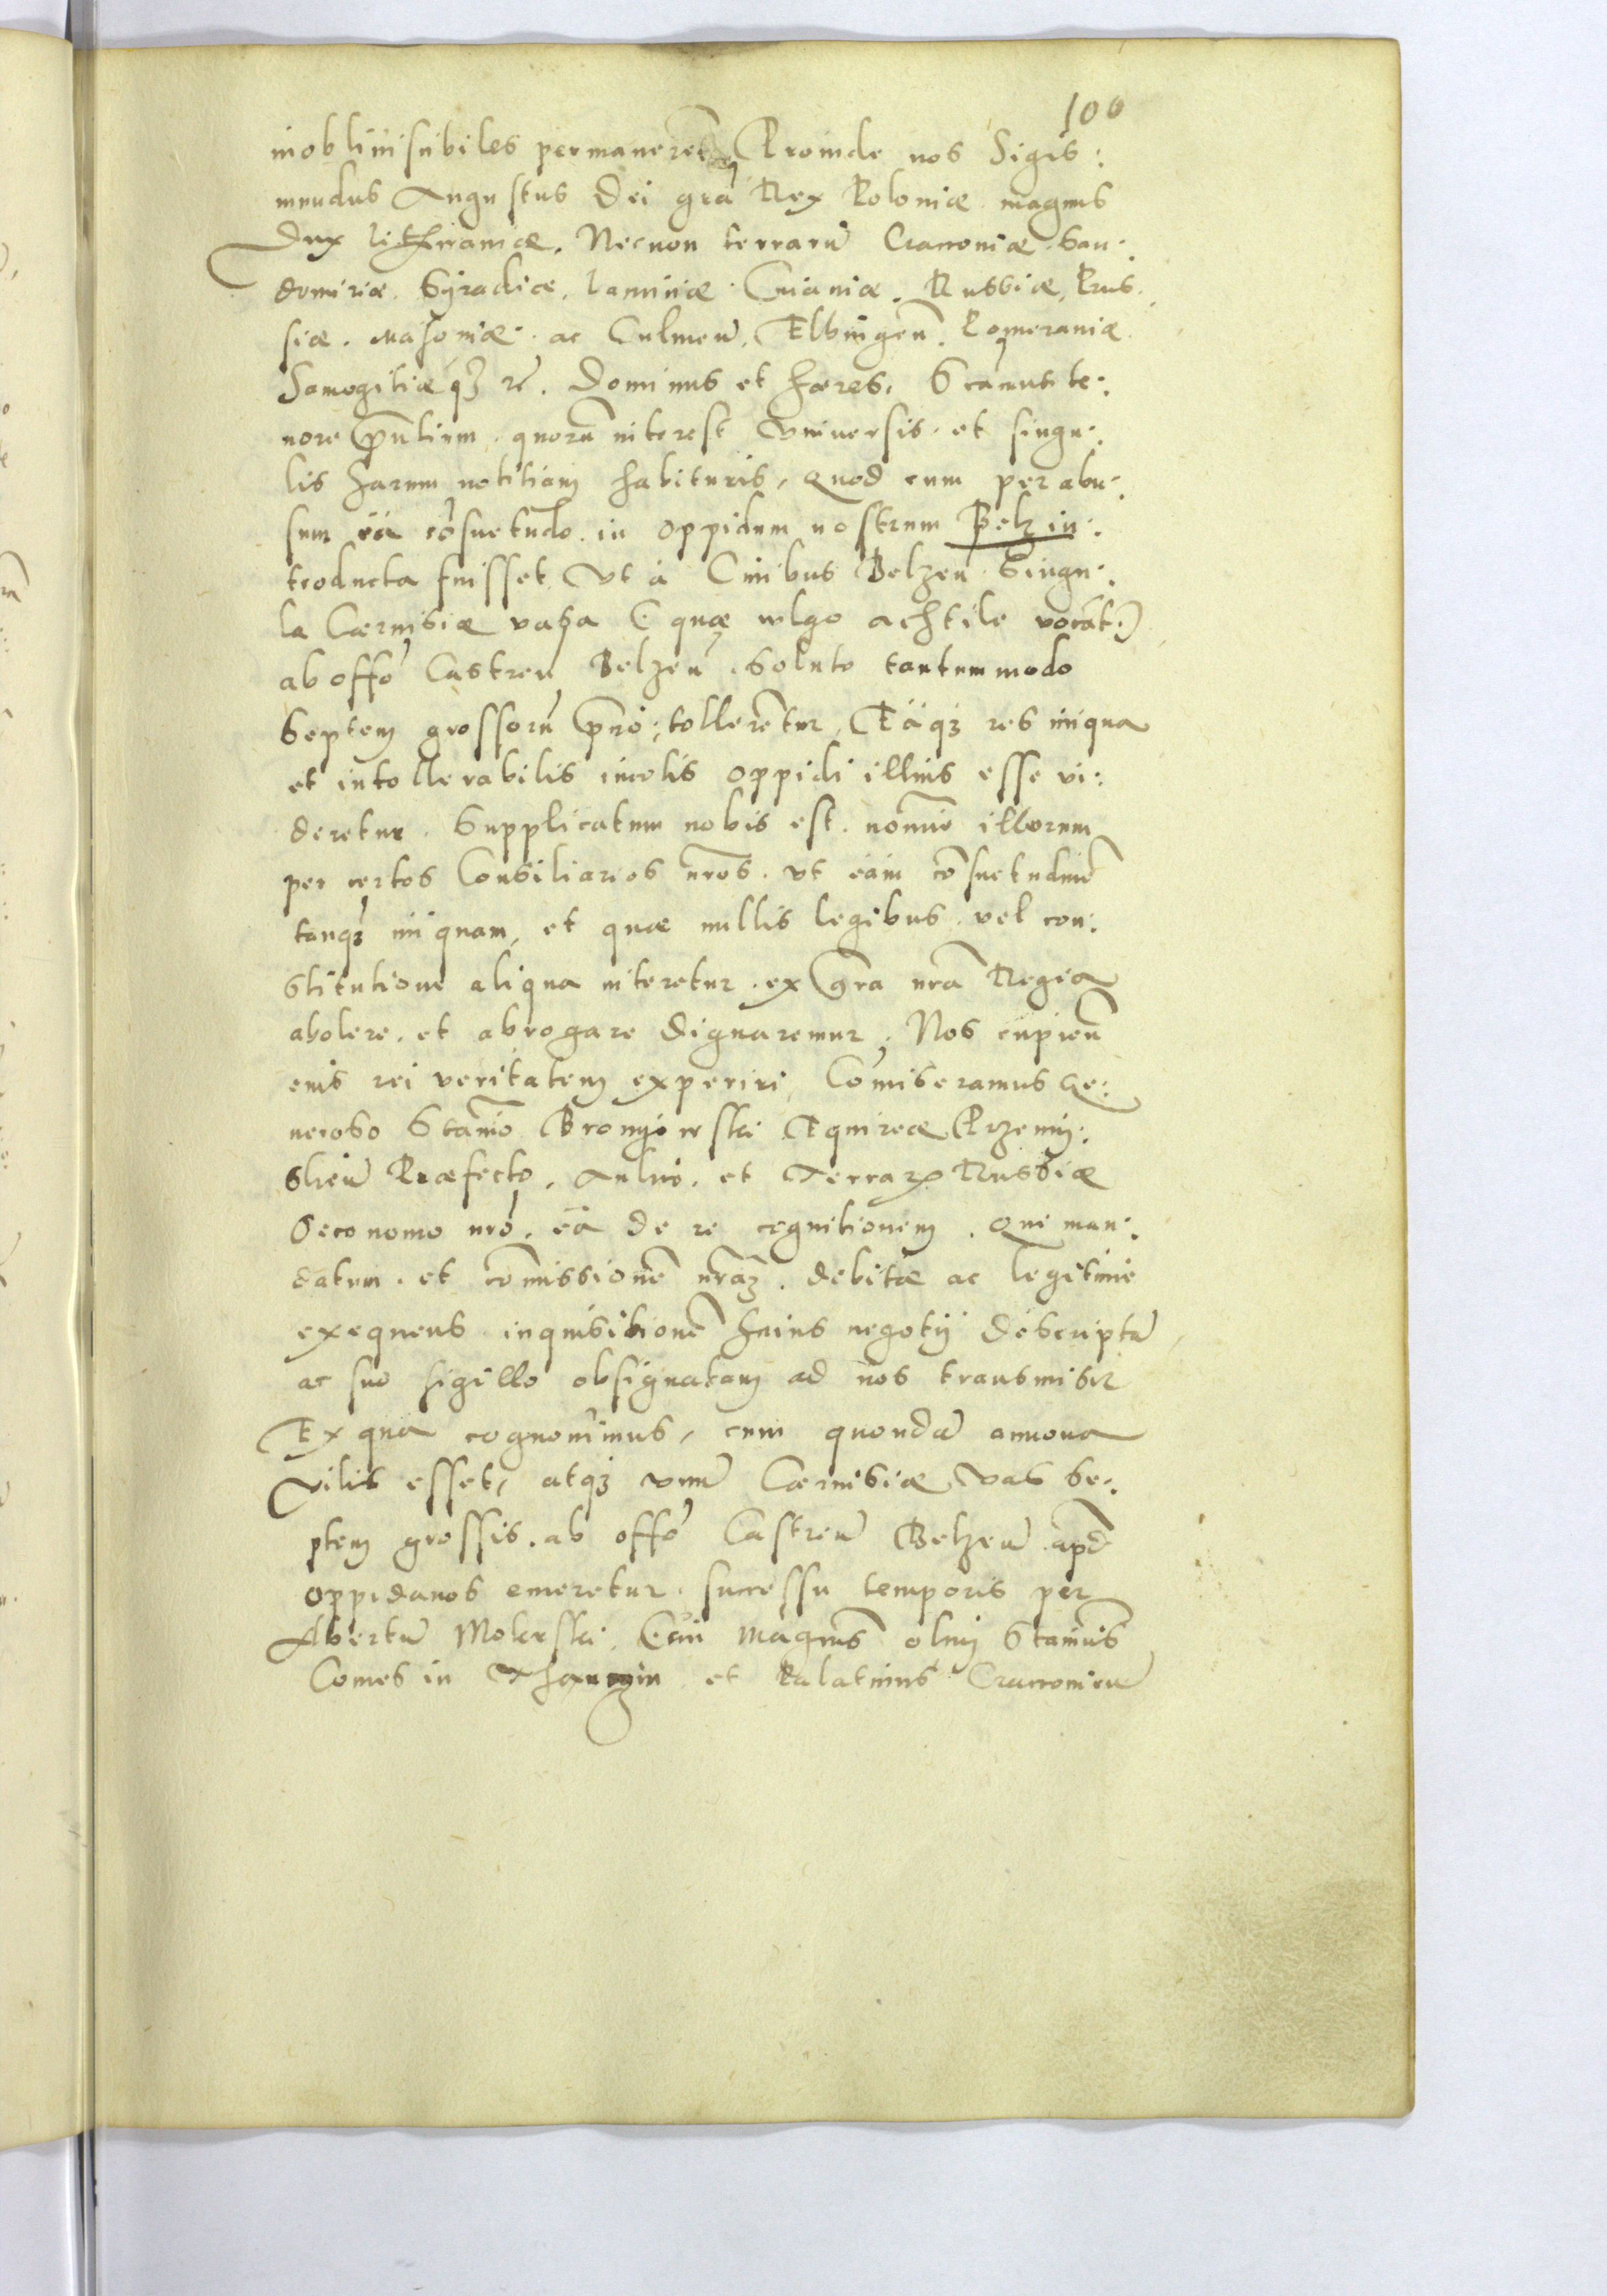 100
inobliuisubiles permaneret Proinde nos Sigis:
mundus Augustus Dei gra Rex Poloniæ magnus
Dux Lithuaniæ. Necnon terrarū Cracouiæ. San:
domiriæ. Syradiæ. Lanciciæ. Cuiauiæ. Russiæ, Prus:
siæ. Masouiæ. ac Culmeñ. Elbingeñ. Pomeraniæ
Samogitiæq3 rē. Dominus et hæres. Scimus te:
nore pñtium. quorū interest vniuersis. et singu:
lis harum notitiam habituris, Quod cum per abu:
sum ea cōsuetudo. in oppidum nostrum Belz in:
troducta fuisset Vt à Ciuibus Belzeñ Singu:
la Cæruisiæ vasa (quæ vulgo achtile vocāt:)
ab offō Castreñ Belzeñ. Soluto tantummodo
Septem grossorū p̄cio: tollerētur, Eaq3 res iniqua
et intollerabilis incolis oppidi illius esse vi:
deretur. Supplicatum nobis est. noīe illorum
per certos Consiliarios nr̄os. vt eam cōsuetudinē
tanq3 iniquam, et quæ nullis legibus. vel con:
stitutione aliqua niteretur. ex gra nra Regia
abolere. et abrogare dignaremur. Nos cupieñ
eius rei veritatem experiri, Cōmiseramus Ge:
neroso Stanio Bromierski Equireæ Przemy:
slieñ Præfecto. Aulico. et Terrar Russiæ
Oeconomo nrō. eā de re cognitionem. Qui man:
datum. et cōmissionē nrām. debitæ ac legitime
exequens inquisitionē huius negotij descriptā
ac suo sigillo obsignatam ad nos transmisit
Ex qua cognouimus, cum quondā annona
vilis esset, atq3 vnū Cæruisiæ vas se:
ptem grossis. ab offō Castreñ Belzeñ apd
oppidanos emeretur. successu temporis per
Abertū Molerski, Cui Magñus olim Stanius
Comes in Tharnzin et Palatinus Cracouieñ